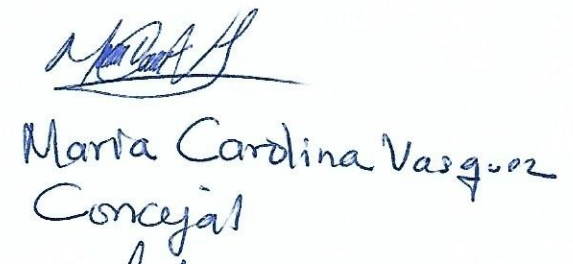 Maria Carolina Vasquez
Concejal